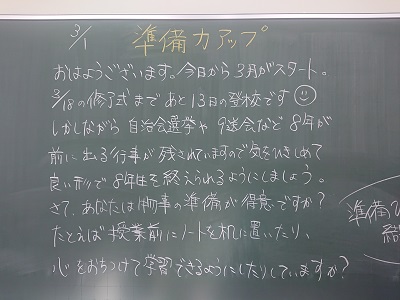 3/1
準備力アップ
おはようございます。今日から3月がスタート。
3/18の修了式まであと13日の登校です
しかしながら自治会選挙や9送会など8年が
前に出る行事が残されていますので気をひきしめて
良い形で8年生を終えられるようにしましょう。
さて、あなたは物事の準備が得意ですか?
たとえば授業前にノートを机に置いたり、
心をおちつけて学習できるようにしたりしていますか?
準備ひ